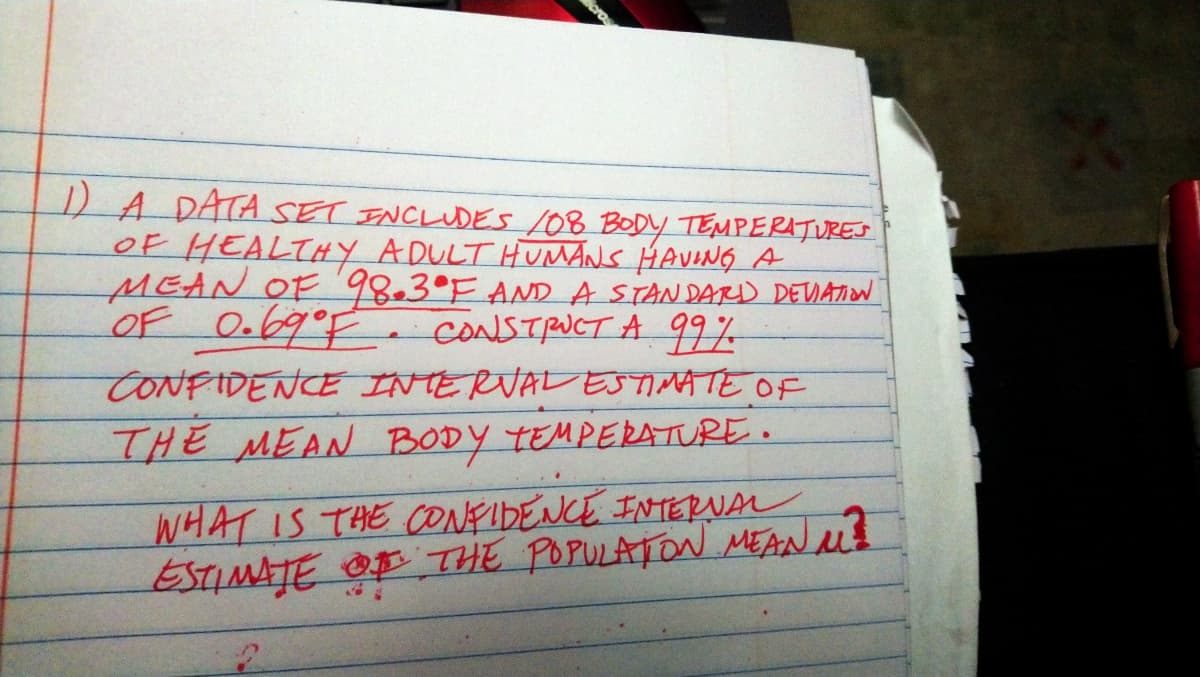 1) A DATA SET INCLUDES 108 BODY TEMPERATURES
OF HEALTHY ADULT HUMANS HAVING A
MEAN OF 98.3°F AND A STANDARD DEVIATION
OF 0.69°F. CONSTRUCT A 99%
CONFIDENCE INTERVAL ESTIMATE OF
THE MEAN BODY TEMPERATURE.
WHAT IS THE CONFIDENCE INTERVAL
ESTIMATE OF THE POPULATION MEAN μ?